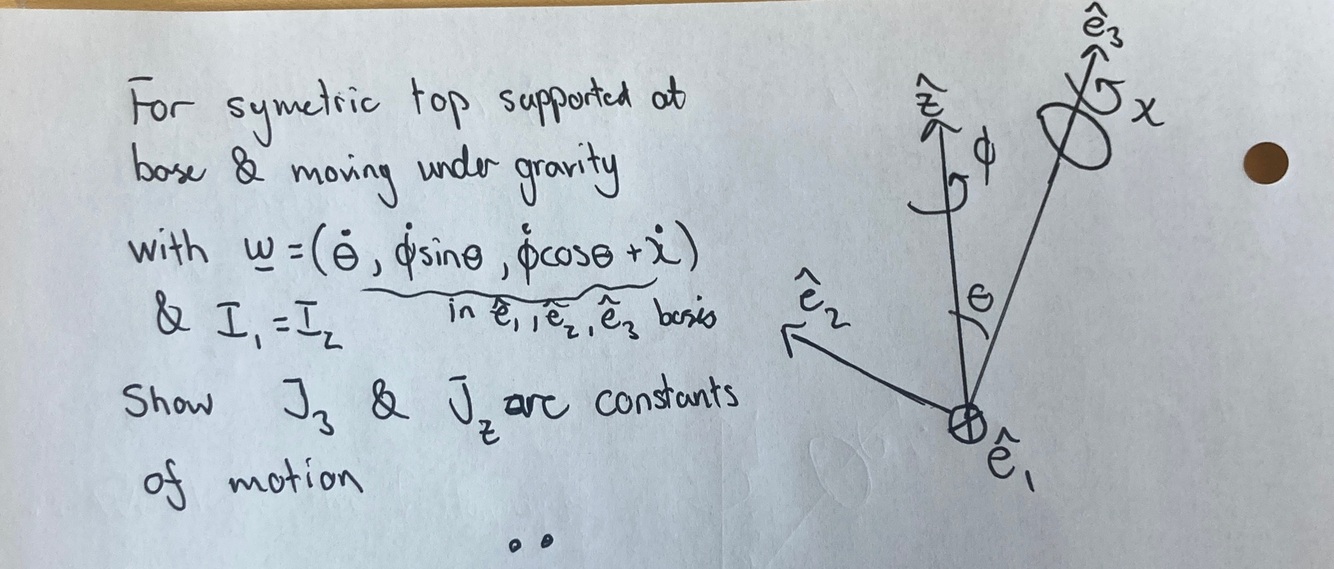 For symetric top supported at
base & moving under gravity
with ω = (θ̇, φ̇sinθ, φ̇cosθ + χ̇)
& I₁ = I₂ in ê₁, ê₂, ê₃ basis
Show J₃ & J_z are constants
of motion
ê₃
χ
ẑ
φ
θ
ê₂
ê₁